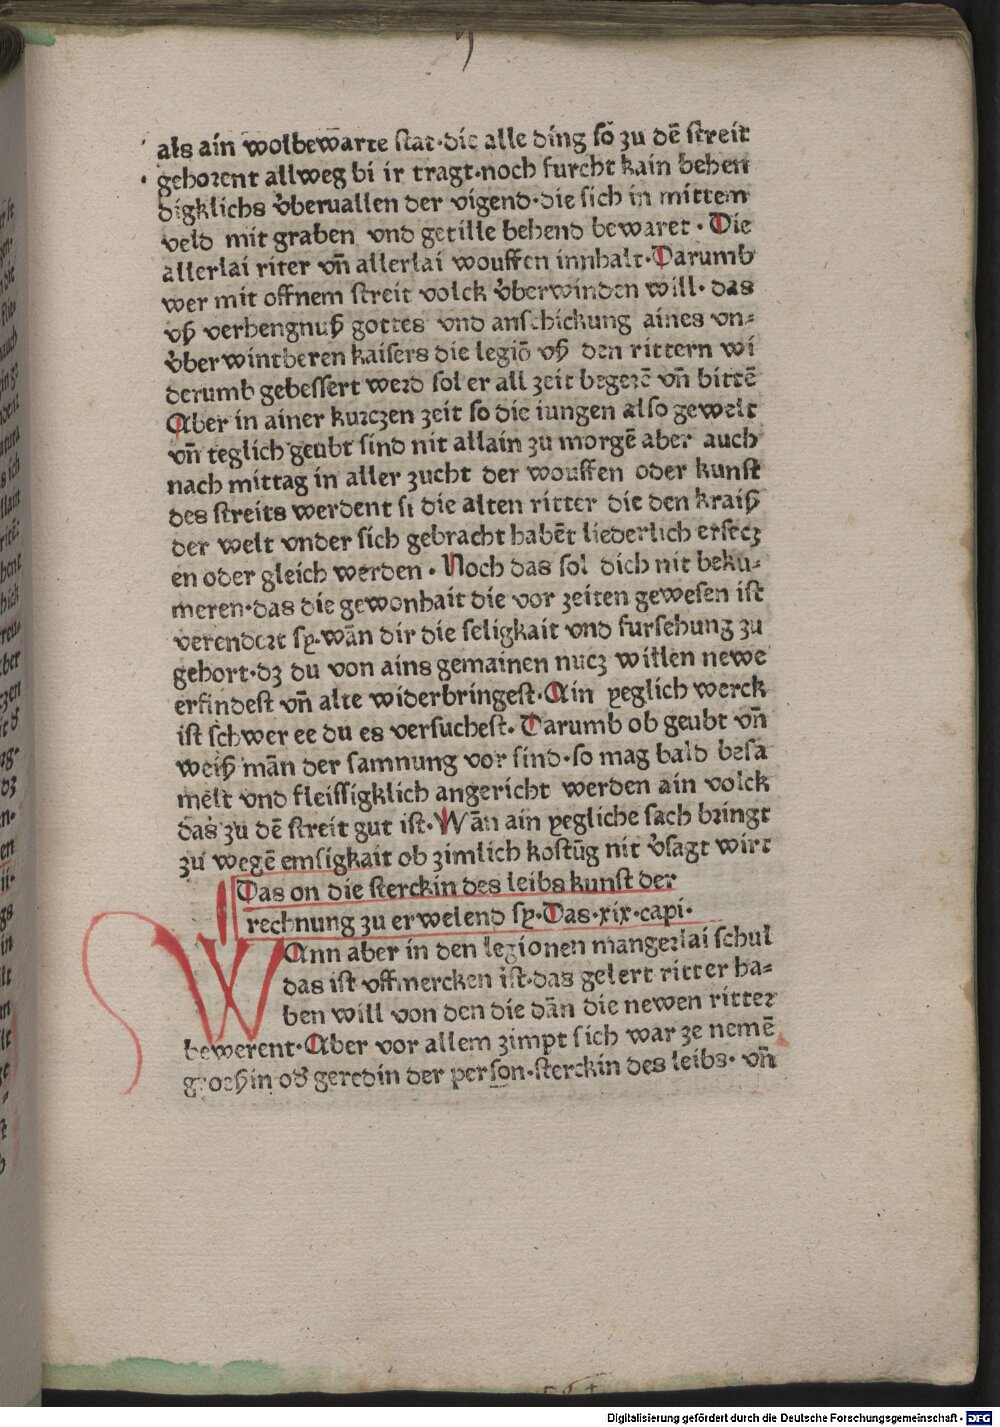 als ain wolbewarte stat·die alle ding so zu dē streit
gehorent allweg bi ir tragt·noch furcht kain behen
digklichs v̊beruallen der vigend·die sich in mittem
veld mit graben vnd getille behend bewaret·Die
allerlai riter vn̄ allerlai wouffen innhalt·Darumb
wer mit offnem streit volck v̊berwinden will·das
vß verhengnuß gottes vnd anschickung aines vn⸗
v̊berwintberen kaisers die legiō vß den rittern wi
derumb gebessert werd sol er all zeit begerē vn̄ bittē
Aber in ainer kurczen zeit so die iungen also gewelt
vn̄ teglich geubt sind nit allain zu morgē aber auch
nach mittag in aller zucht der wouffen oder kunst
des streits werdent si die alten ritter die den kraiß
der welt vnder sich gebracht habēt liederlich ersecz
en oder gleich werden·Noch das sol dich nit beku⸗
meren·das die gewonhait die vor zeiten gewesen ist
verendert sy·wān dir die seligkait vnd fursehung zu
gehort·dz du von ains gemainen nucz willen newe
erfindest vn̄ alte widerbringest·Ain yeglich werck
ist schwer ee du es versuchest·Darumb ob geubt vn̄
weiß mān der samnung vor sind·so mag bald besa
melt vnd fleissigklich angericht werden ain volck
das zu dē streit gut ist·Wān ain yegliche sach bringt
zu wegē emsigkait ob zimlich kostūg nit v̓sagt wirt
Das on die sterckin des leibs kunst der
rechnung zu erwelend sy·Das·xix·capi·
WAnn aber in den legionen mangerlai schul
das ist vffmercken ist·das gelert ritter ha⸗
ben will von den die dān die newen ritter
bewerent·Aber vor allem zimpt sich war ze nemē
groehin od̓ geredin der person·sterckin des leibs·vn̄
Digitalisierung gefördert durch die Deutsche Forschungsgemeinschaft - DFG